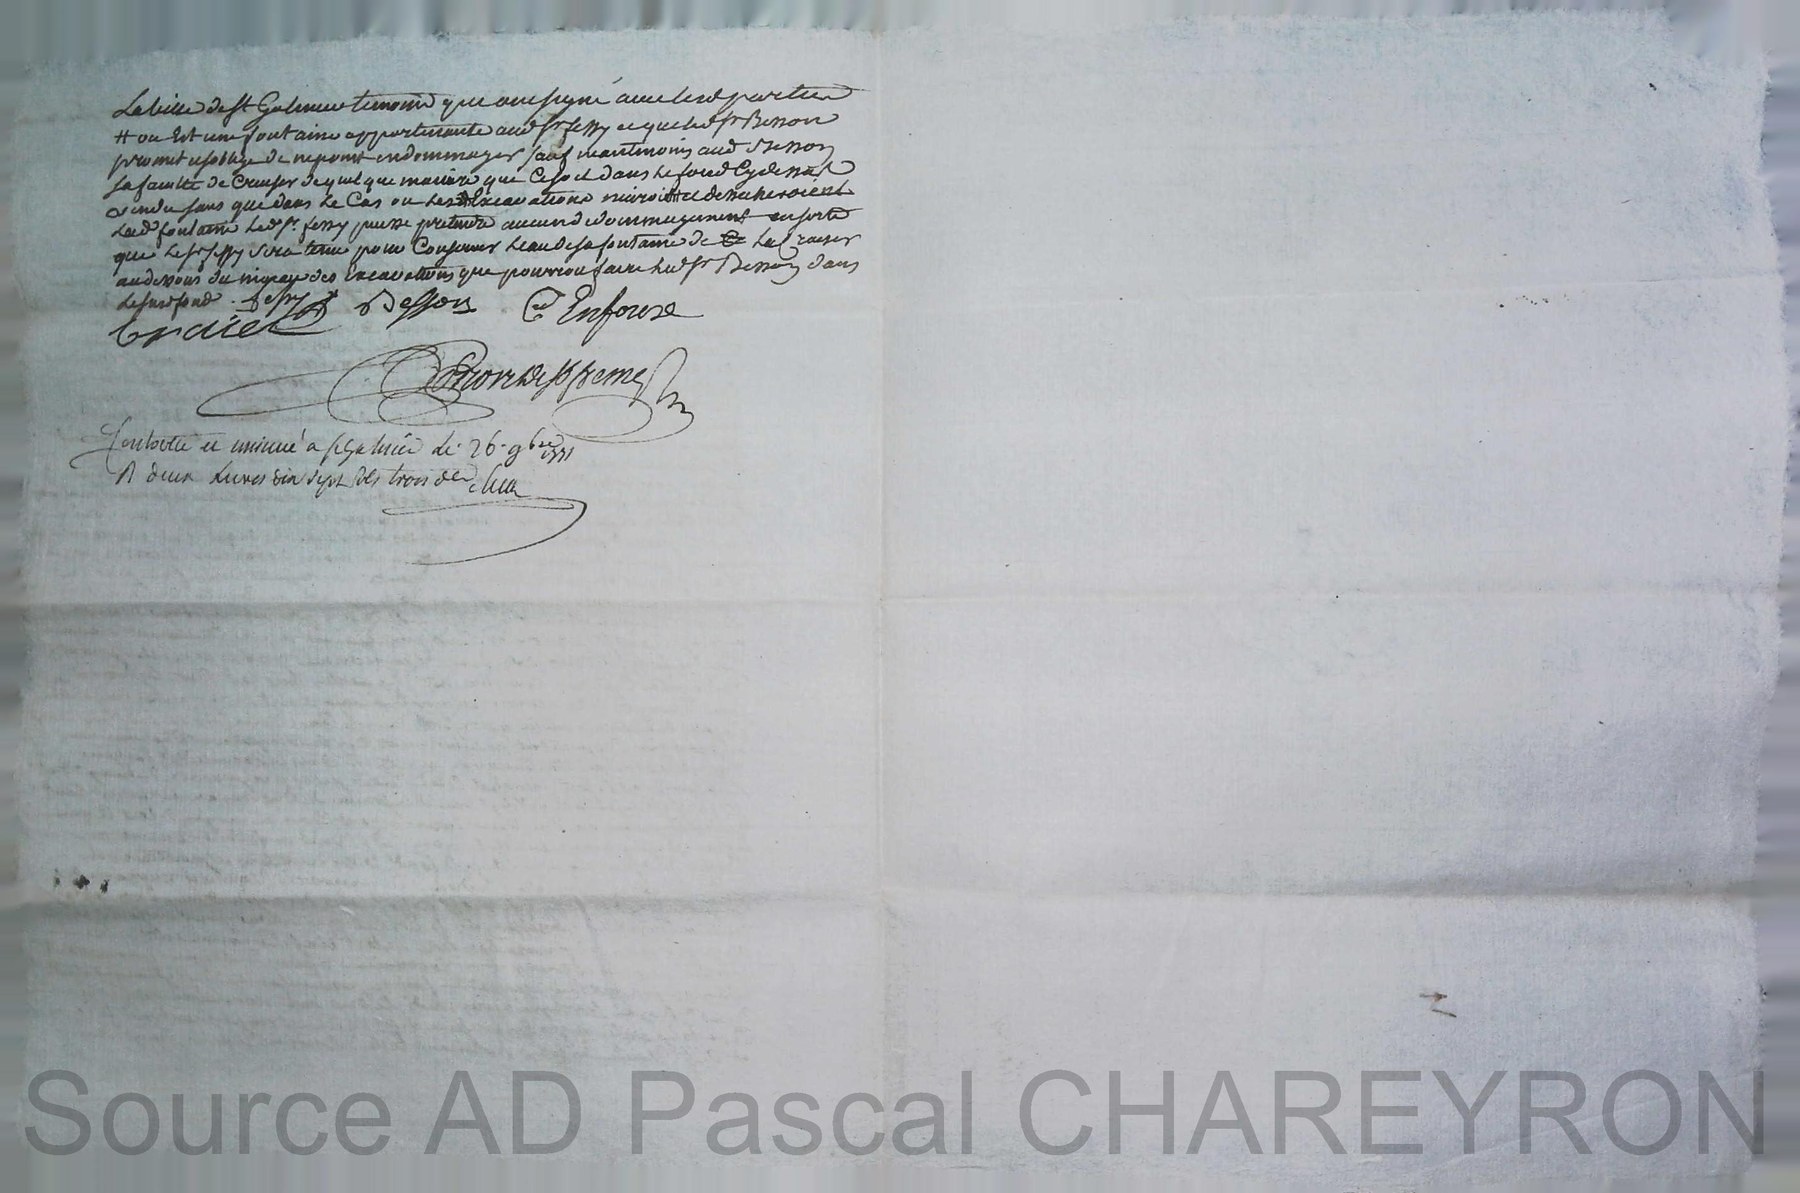 La ville de St Galmier temoins qui ont signé avec lesd parties
# ou Est une fontaine appartenante aud Sr fessy et que led Sr Besson
promet et soblige de ne point endommager sauf neantmoins aud Besson
la faculté de Creuser de quelque maniere que Ce soit dans le fond Cy dessus
vendu sans que dans le Cas ou les Excavations
lad fontaine led Sr fessy puisse pretendre aucun dedommagement en sorte
que le Sr fessy sera tenu pour Conserver leau de sa fontaine de la Creuser
au dessous du niveau des Excavations que pourroit faire led Sr Besson dans
le susd fond . fessy
Besson C Enfoux

Controllé et insinué a St Galmier le 26 9bre 1771
R deux Livres dix sept sols trois den
Source AD Pascal CHAREYRON